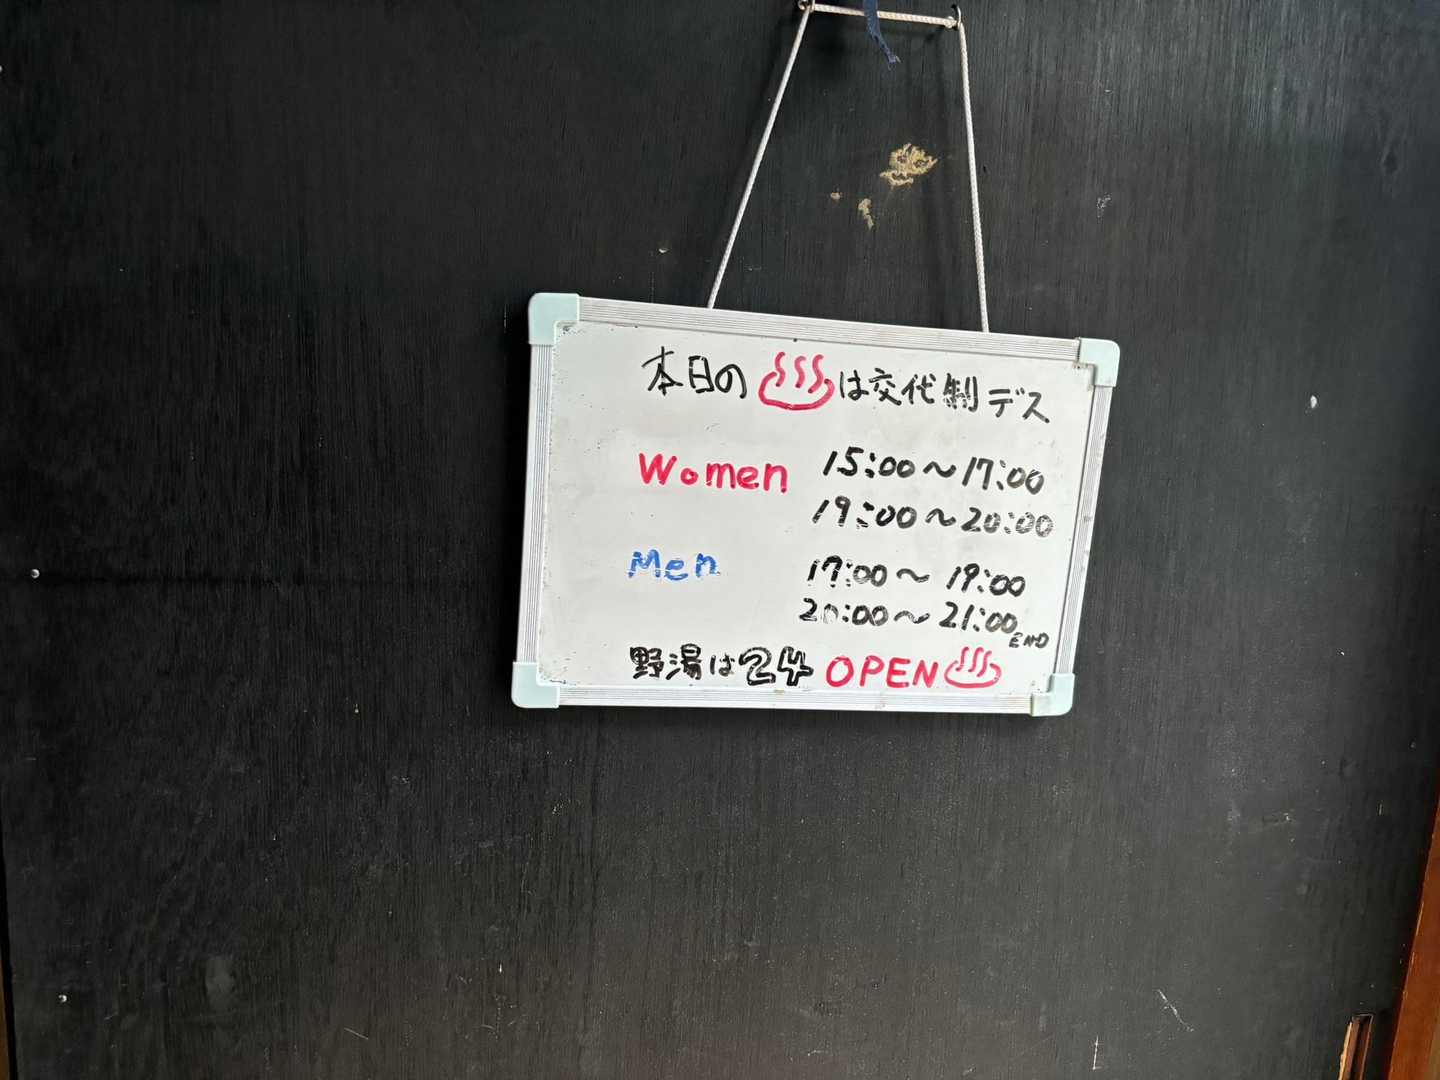 本日の♨は交代制デス
Women 15:00～17:00
19:00～20:00
Men 17:00～19:00
20:00～21:00 END
野湯は24 OPEN♨